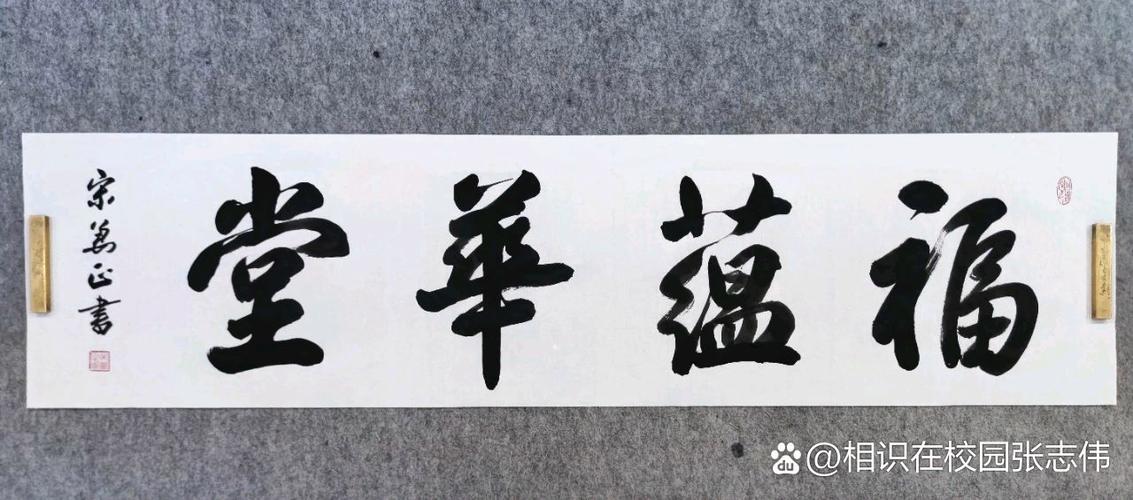 福蘊華堂
宋萬正書
@相识在校园张志伟